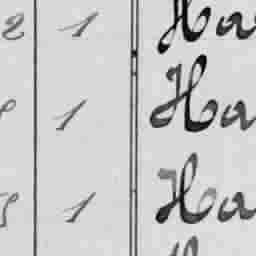 2 1 Ha
1 Ha
1 Ha